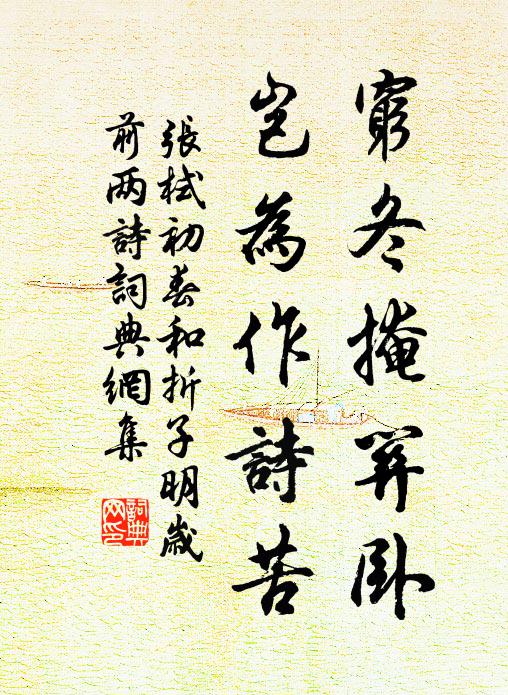 窮冬掩關卧
豈為作詩苦
張栻初春和折子明歲
前两詩詞典網集
詞典网印